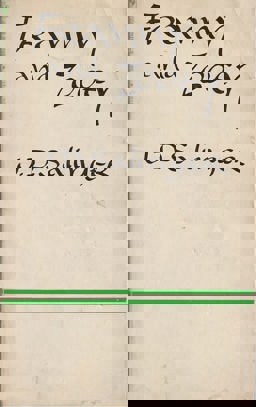 Franny
and Zooey
J.D.Salinger
Franny
and Zooey
J.D.Salinger